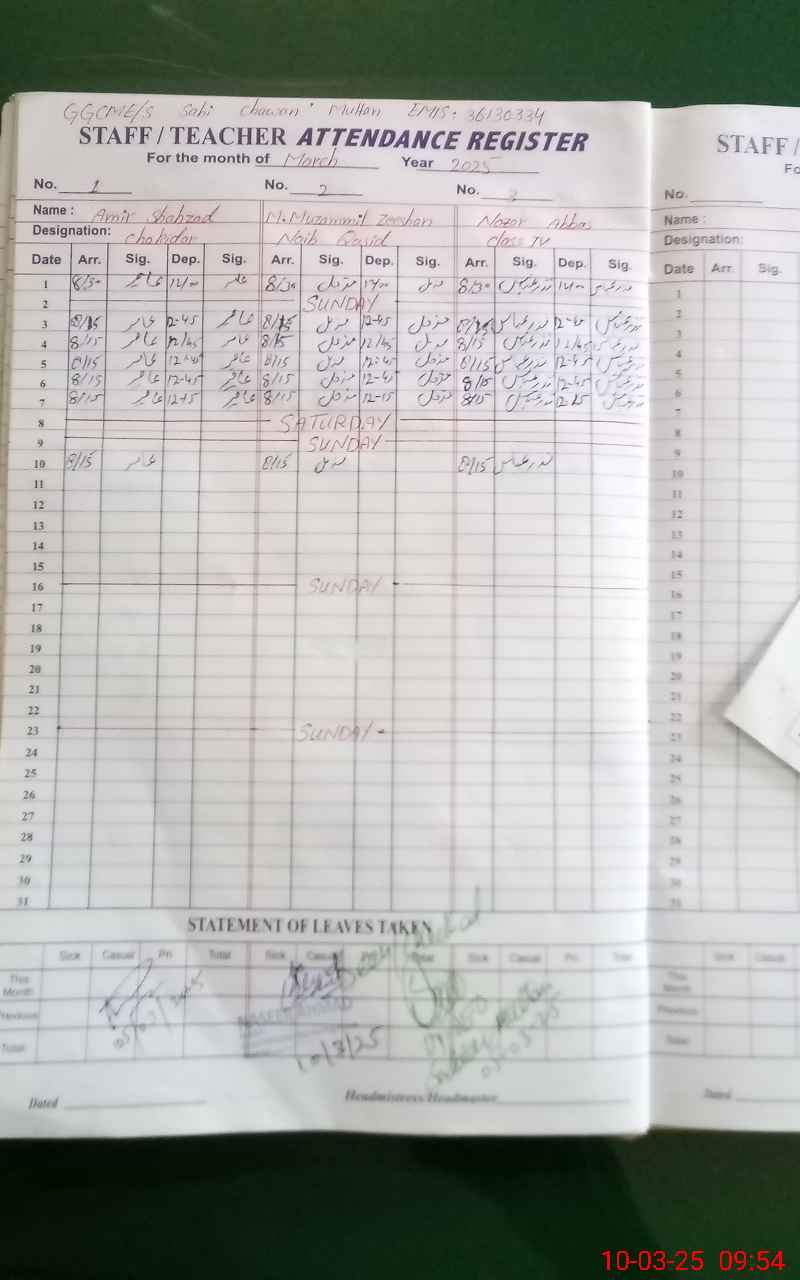 GGCME/S Sahi Chawan Multan EMIS: 36130334
STAFF / TEACHER ATTENDANCE REGISTER
For the month of March Year 2025
No. 1 No. 2 No. 3
Name : Amir Shahzad M. Muzammil Zeeshan Nazar Abbas
Designation: Chokidar Naib Qasid Class IV
Date Arr. Sig. Dep. Sig. Arr. Sig. Dep. Sig. Arr. Sig. Dep. Sig.
1 8/30 عامر 12/00 عامر 8/30 مزمل 12/00 مزمل 8/30 نذر عباس 12/00 نذر عباس
2 SUNDAY
3 8/15 عامر 12-45 عامر 8/15 مزمل 12-45 مزمل 8/15 نذر عباس 12-45 نذر عباس
4 8/15 عامر 12/45 عامر 8/15 مزمل 12/45 مزمل 8/15 نذر عباس 12/45 نذر عباس
5 8/15 عامر 12-45 عامر 8/15 مزمل 12-45 مزمل 8/15 نذر عباس 12-45 نذر عباس
6 8/15 عامر 12-45 عامر 8/15 مزمل 12-45 مزمل 8/15 نذر عباس 12-45 نذر عباس
7 8/15 عامر 12-15 عامر 8/15 مزمل 12-15 مزمل 8/15 نذر عباس 12-15 نذر عباس
8 SATURDAY
9 SUNDAY
10 8/15 عامر 8/15 مزمل 8/15 نذر عباس
11
12
13
14
15
16 SUNDAY
17
18
19
20
21
22
23 SUNDAY
24
25
26
27
28
29
30
31
STATEMENT OF LEAVES TAKEN
Sick Casual Pri. Total Sick Casual Pri. Total Sick Casual Pri. Total
This Month
Previous
Total
05/03/2025
10/3/25
05-03-25
Dated Headmistress/Headmaster
STAFF /
No.
Name :
Designation:
Date Arr. Sig.
1
2
3
4
5
6
7
8
9
10
11
12
13
14
15
16
17
18
19
20
21
22
23
24
25
26
27
28
29
30
31
Sick Casual
This Month
Previous
Total
Dated
10-03-25 09:54